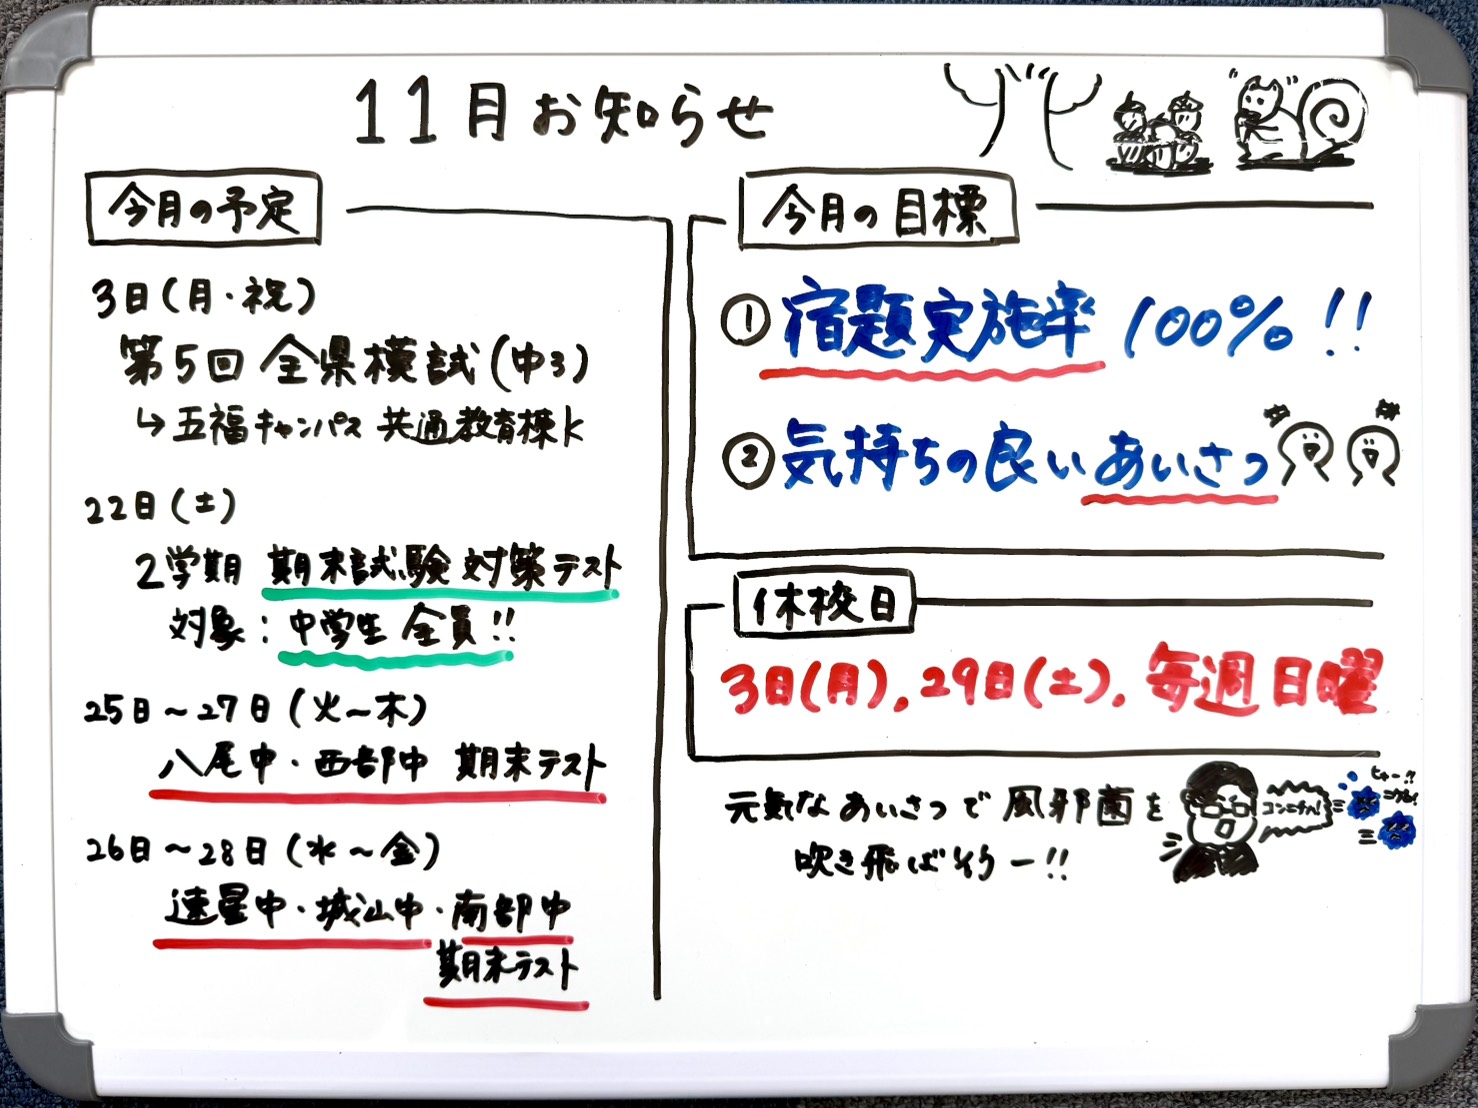 11月お知らせ
今月の予定
3日(月・祝)
第5回 全県模試(中3)
↳五福キャンパス 共通教育棟K
22日(土)
2学期 期末試験 対策テスト
対象：中学生 全員!!
25日～27日(火～木)
八尾中・西部中 期末テスト
26日～28日(水～金)
速星中・城山中・南部中
期末テスト
今月の目標
①宿題実施率 100%!!
②気持ちの良いあいさつ
休校日
3日(月), 29日(土), 毎週日曜
元気なあいさつで風邪菌を
吹き飛ばそうー!!
コンニチハ!
ヒャー!!